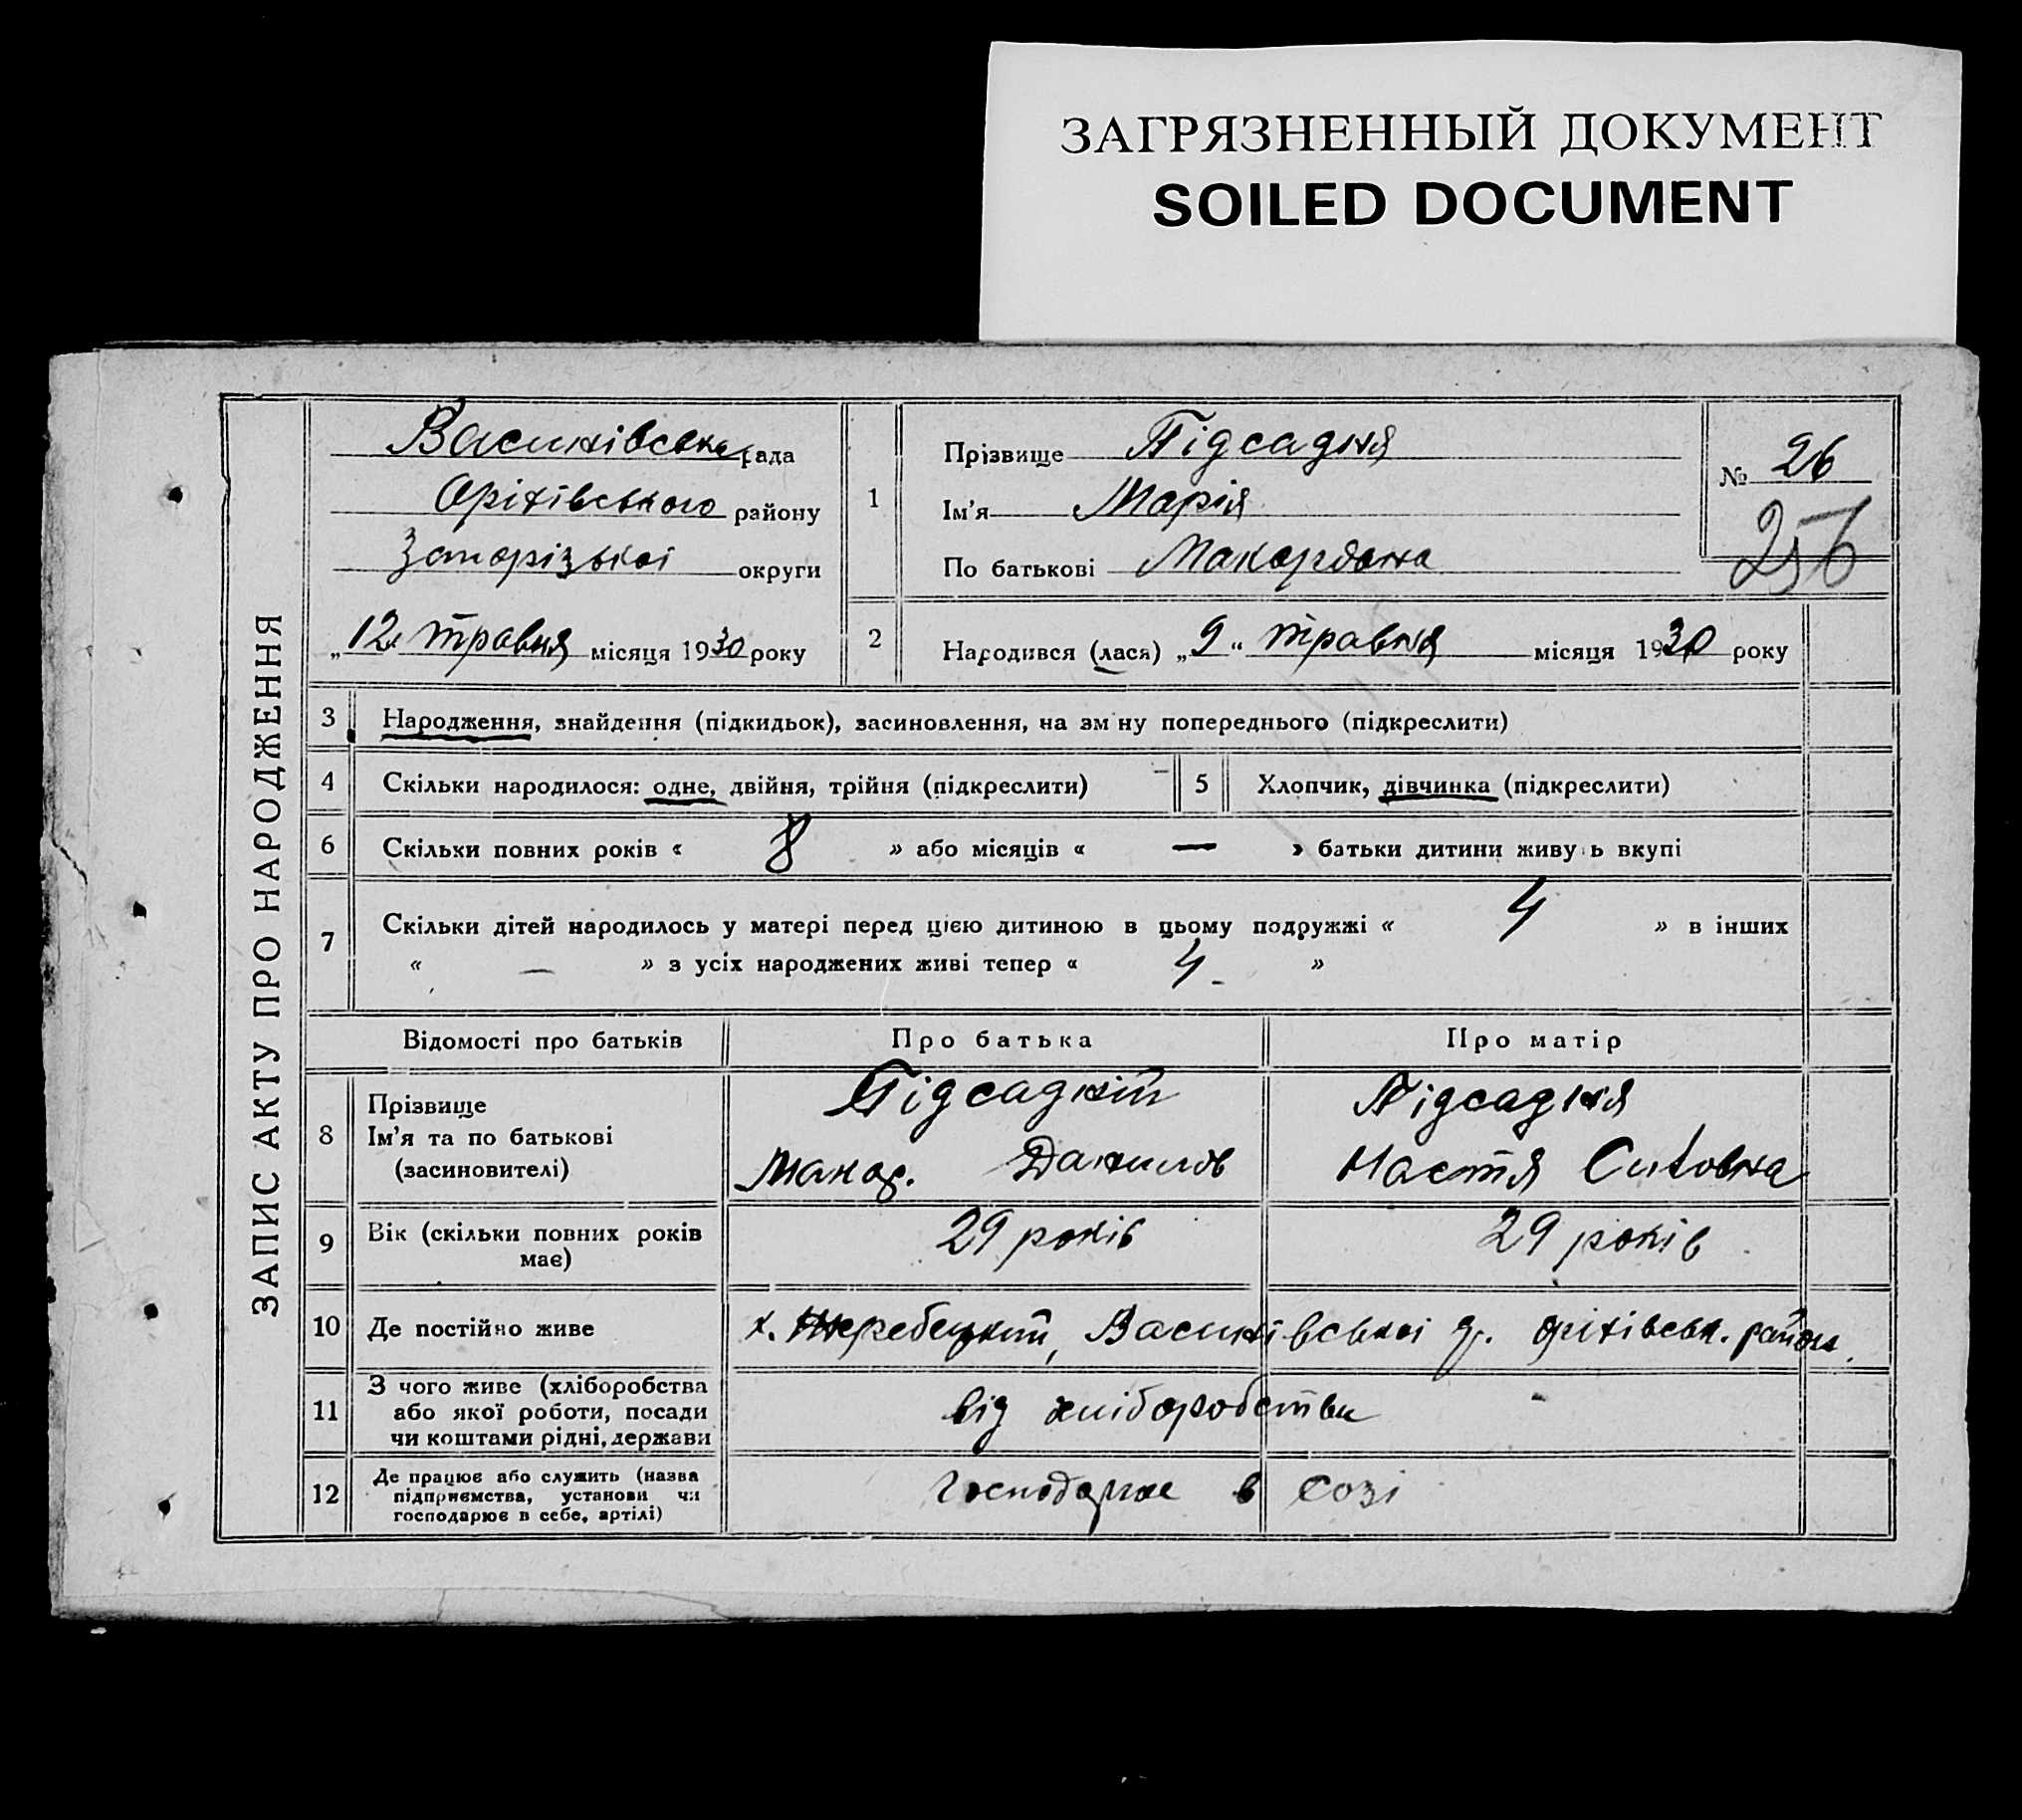 ЗАГРЯЗНЕННЫЙ ДОКУМЕНТ
SOILED DOCUMENT
ЗАПИС АКТУ ПРО НАРОДЖЕННЯ
Василівська рада
Оріхівського району
Запорізької округи
„12" травня місяця 1930 року
1
Прізвище Підсадня
Ім'я Марія
По батькові Макаровна
№ 26
256
2 Народився (лася) „9" травня місяця 1930 року
3 Народження, знайдення (підкидьок), засиновлення, на зм ну попереднього (підкреслити)
4 Скільки народилося: одне, двійня, трійня (підкреслити)
5 Хлопчик, дівчинка (підкреслити)
6 Скільки повних років « 8 » або місяців « — » батьки дитини живу ь вкупі
7 Скільки дітей народилось у матері перед цією дитиною в цьому подружжі « 4 » в інших
« — » з усіх народжених живі тепер « 4 »
Відомості про батьків Про батька Про матір
8 Прізвище
Ім'я та по батькові
(засиновителі)
Підсадній
Макар. Данилов
Підсадня
Настя
9 Вік (скільки повних років
має)
29 років 29 років
10 Де постійно живе х. Жеребецький, Василівської Оріхівськ. район.
11 З чого живе (хліборобства
або якої роботи, посади
чи коштами рідні, держави
від хліборобства
12 Де працює або служить (назва
підприємства, установи чи
господарює в себе, артілі)
господарює в созі